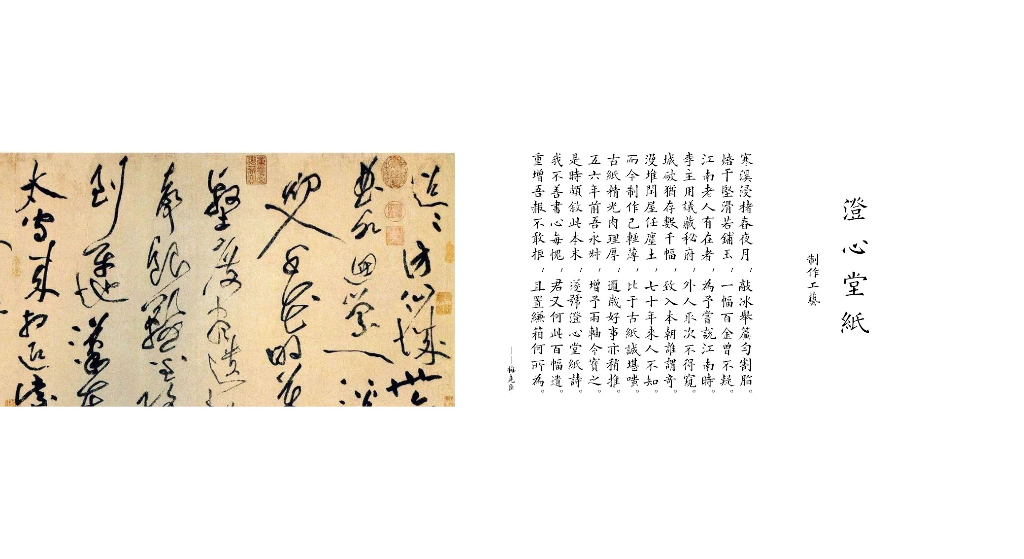 澄心堂紙
制作工藝
寒溪浸楮春夜月,敲冰舉簾勻割脂。
焙干堅滑若鋪玉,一幅百金曾不疑。
江南老人有在者,為予嘗說江南時。
李主用議藏秘府,外人取次不得窺。
城破猶存數千幅,致入本朝誰謂奇。
堆閑屋任塵土,七十年來人不知。
而今制作已輕薄,比于古紙誠堪嗤。
古紙精光肉理厚,邇歲好事亦稍推。
五六年前吾永,增予兩軸令寶之。
是時頗敘此本末,遂號澄心堂紙詩。
我不善書心每愧,君又何此百幅遺。
重增吾報不敢拒,且置縑箱何所為。
——梅堯臣
迢々訪仙城卅六
曲水迴縈一溪
初入千花明
壑度盡
銀鞍金絡
到平地漢東
太守來相迎